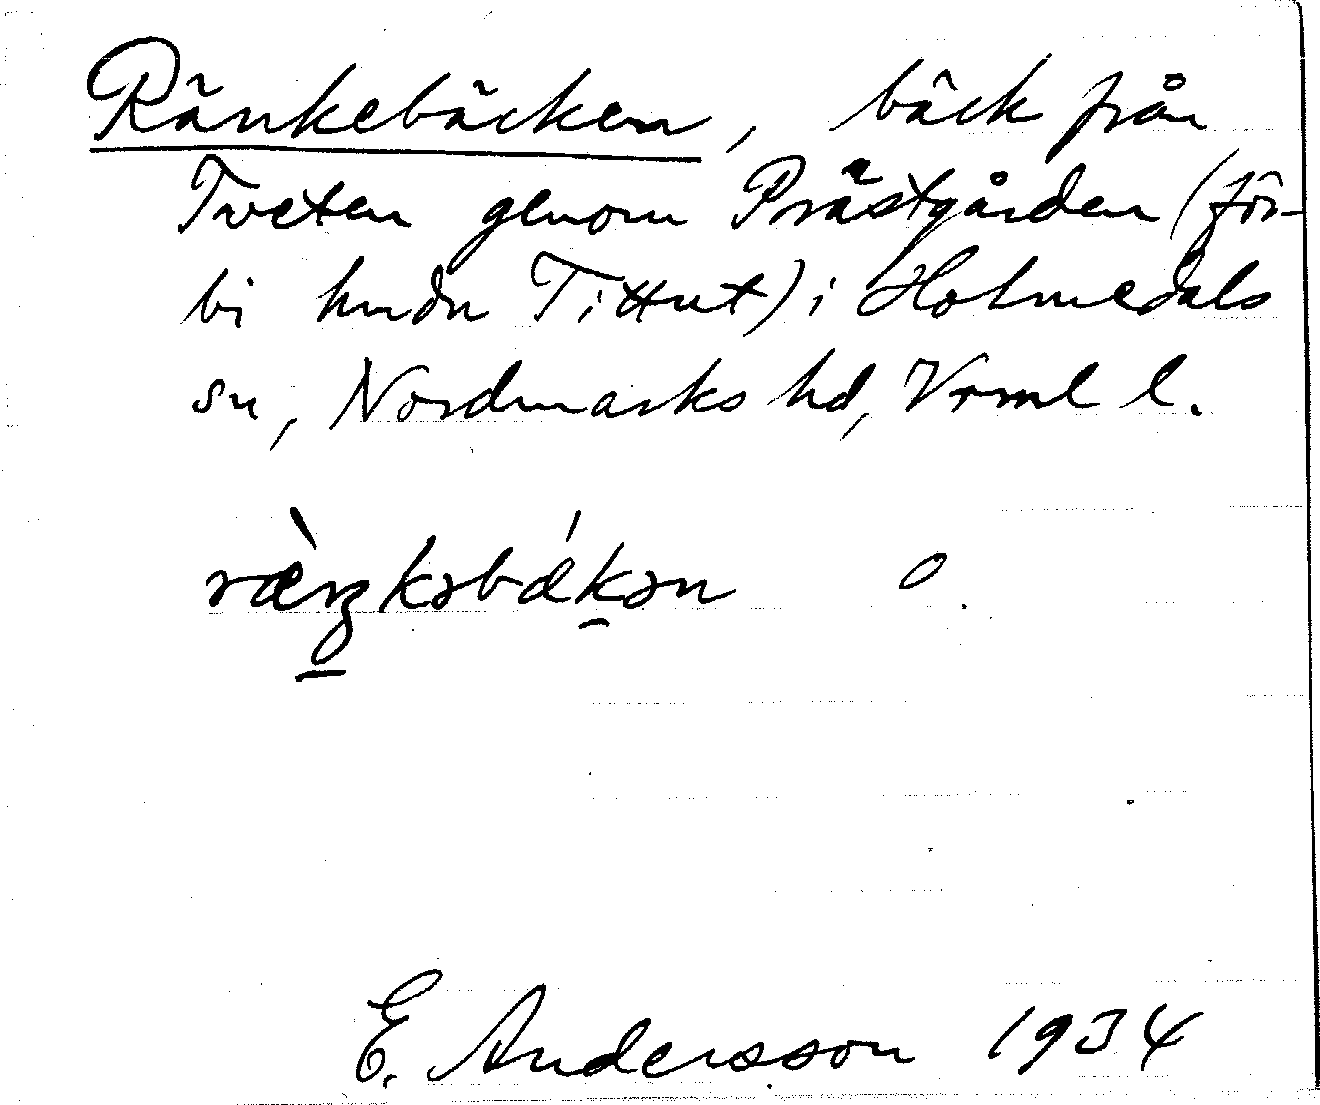 Ränkebäcken, bäck från
Tveten genom Prästgården (för-
bi hmdn Tittut) i Holmedals
sn, Nordmarks hd, Vrml l.
ræ̀ŋkəbǽkən o
E. Andersson 1934